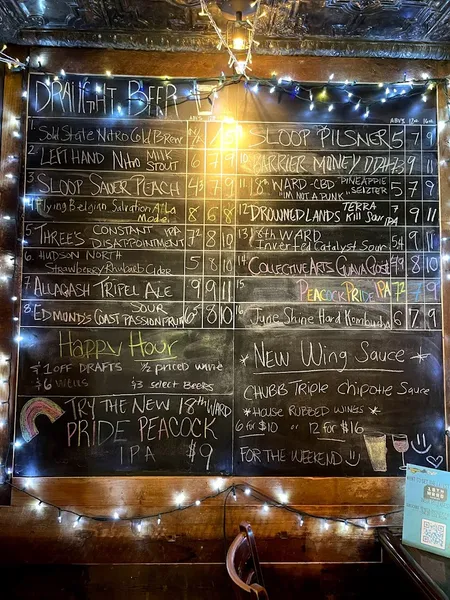 DRAUGHT BEER
1 Solid State Nitro Cold Brew 7
2 LEFT HAND Nitro MILK STOUT 6 7 9
3 SLOOP SAUER PEACH 7 9
4 Flying Belgian Salvation A La Mode 8 6 8
5 THREE'S CONSTANT IPA DISAPPOINTMENT 8 10
6. HUDSON NORTH Strawberry Rhubarb Cider 5 8 10
7 ALLAGASH TRIPEL ALE 9 9 11
8. EDMUND'S COAST PASSIONFRUIT SOUR 8 10
ABV%
SLOOP PILSNER 5 7 9
BARRIER MONEY 9 11
11 18th WARD-CBD PINEAPPLE SELTZER "IM NOT A PUNK" 5 7 9
12 DROWNED LANDS TERRA Kill Sour IPA 7 9 11
13 18th WARD Inverted Catalyst Sour 9 11
14 COLLECTIVE ARTS GUAVA GOSE 8 10
15 PEACOCK PRIDE IPA 7 9
16 June Shine Hard Kombucha 6 7 9
Happy Hour
$1 OFF DRAFTS ½ priced wine
$6 WELLS $3 select Beers
TRY THE NEW 18th WARD
PRIDE PEACOCK
IPA $9
* NEW WING SAUCE *
CHUBB TRIPLE Chipotle Sauce
* HOUSE RUBBED WINGS *
6 for $10 or 12 for $16
FOR THE WEEKEND